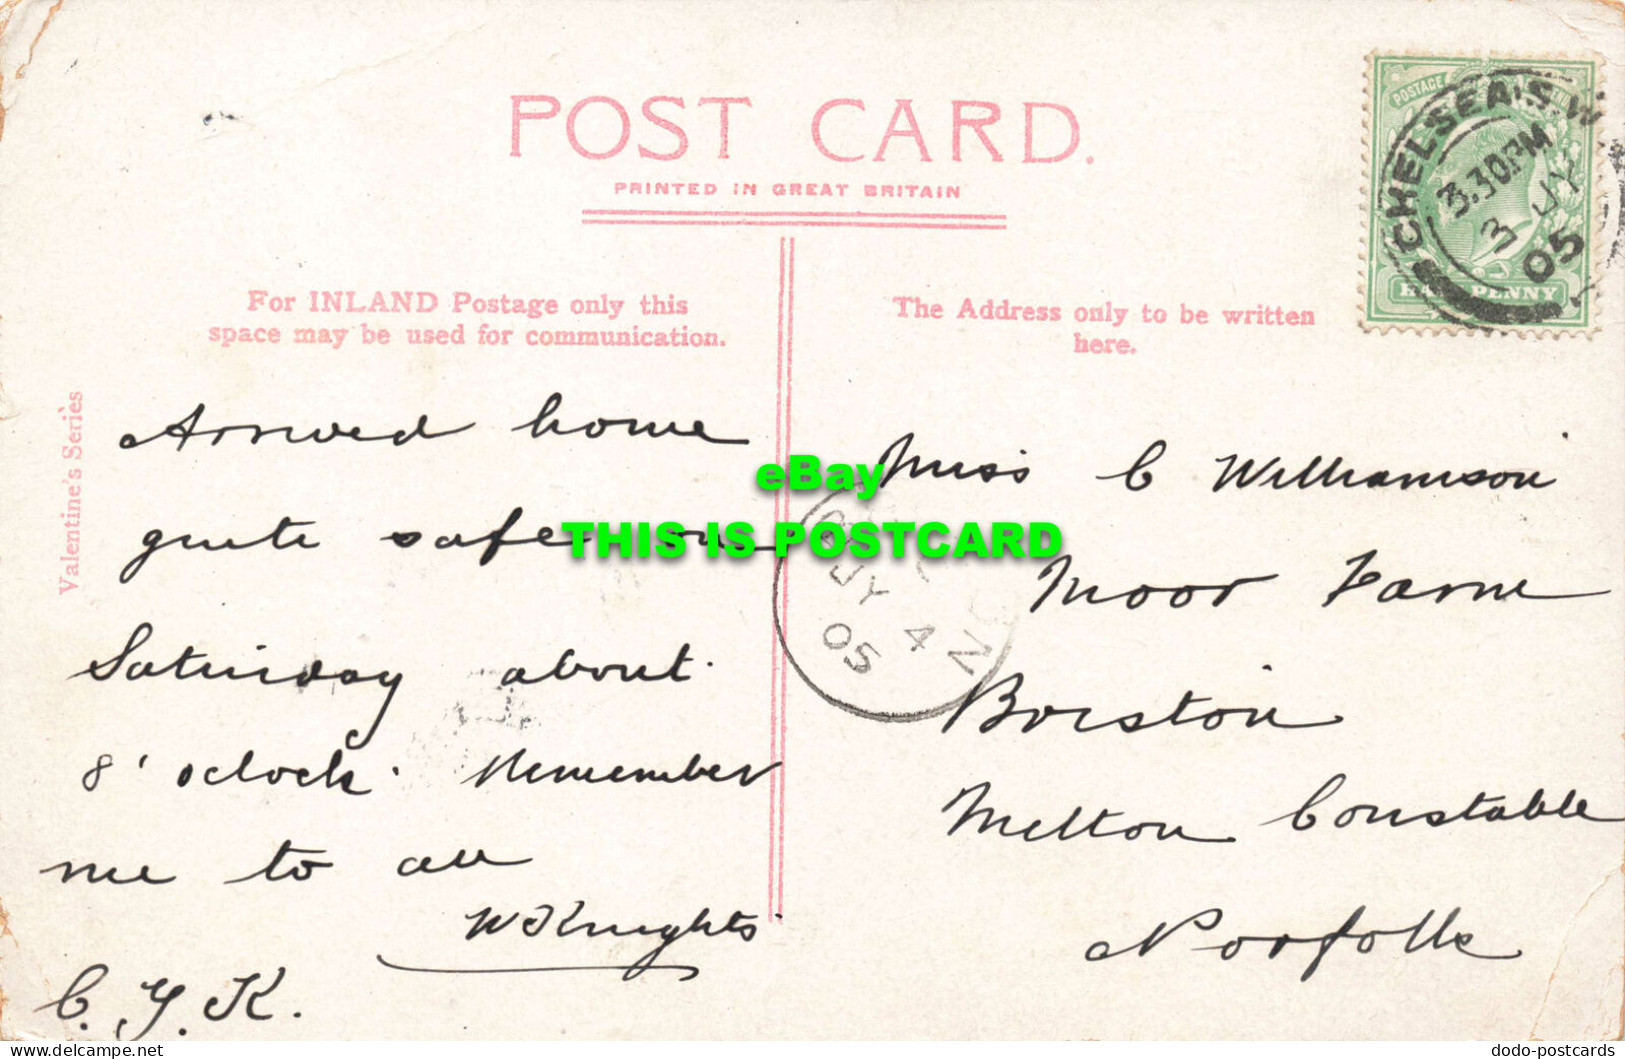 POST CARD.
PRINTED IN GREAT BRITAIN
For INLAND Postage only this
space may be used for communication.
The Address only to be written
here.
Valentine's Series
POSTAGE
HALF PENNY
CHELSEA.S.W
3.30PM
3 JY
05
Arrived home
quite safe on
Saturday about
8' oclock. Remember
me to all
W Knights
C. Y. K.
Miss C Williamson
Moor Farm
Briston
Melton Constable
Norfolk
JY 4
05
eBay
THIS IS POSTCARD
dodo-postcards